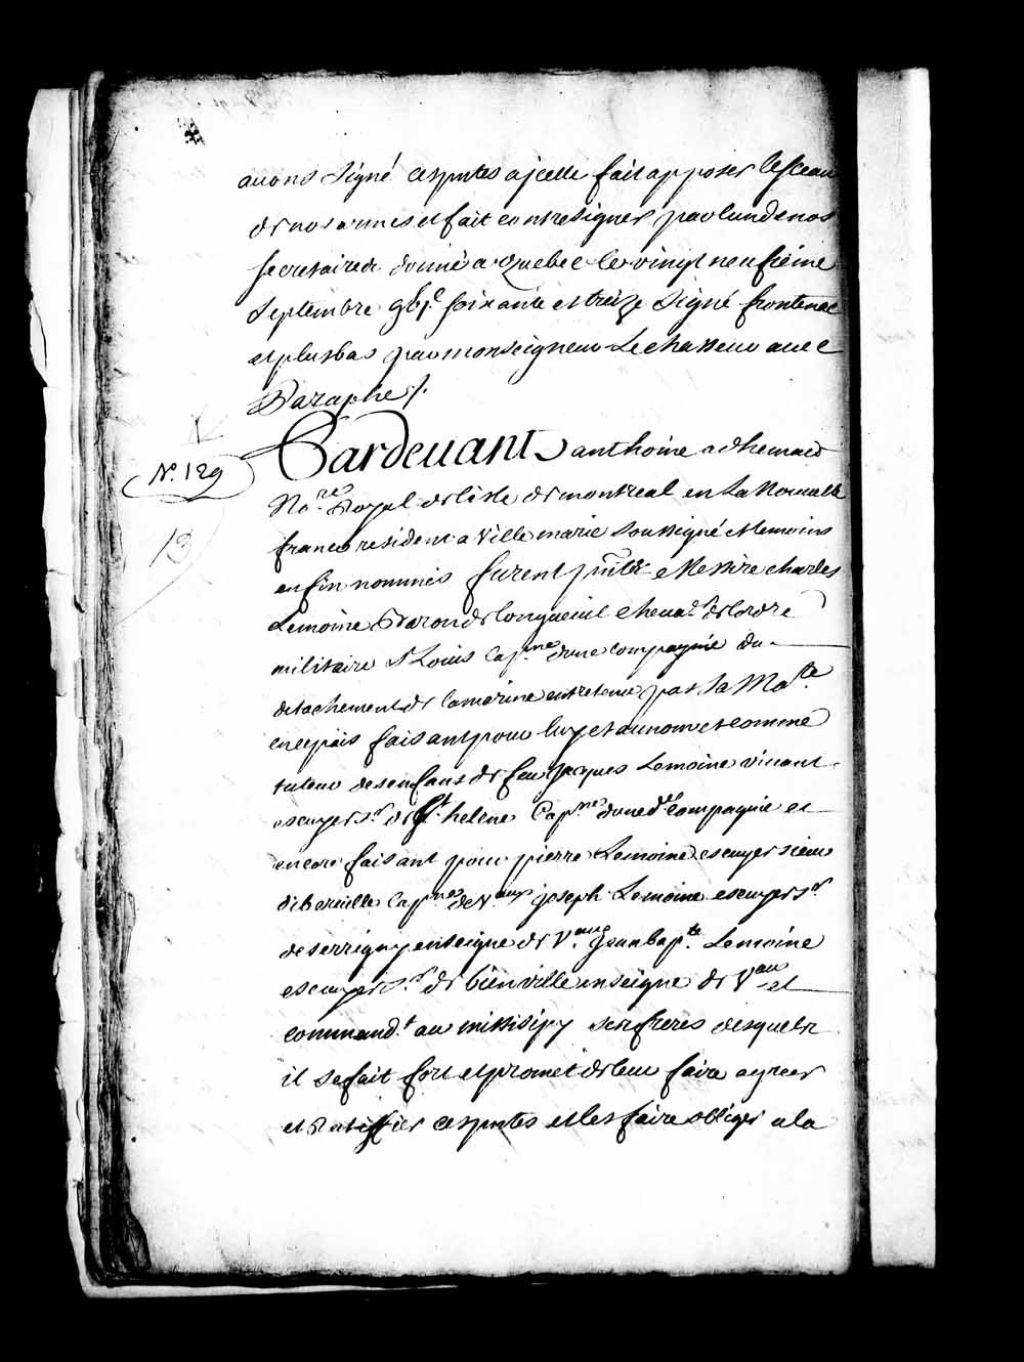 auons signé cesputes a jcelle fait apposer le sceau
de nos armes et fait contresigner par lun de nos
secretaires donné a Quebec le vingt neufieme
Septembre gbjc. soixante et treize Signé frontenac
et plus bas par monseigneur Le chasseur auec
Paraphe ./.
Pardeuant anthoine adhemard
No.re Royal de lisle de montreal en la Nouuelle
france resident a Ville marie soussigné et temoins
N.o 129
13
en fin nommés furent Messire charles
Lemoine Baron de longueuil cheua.r de lordre
militaire St Louis Cap.ne dune compagnie du
detachement de la marine entretenue par Sa Ma.te
en ce païs faisant pour luy et au nom et comme
tuteur des enfans de feu Jacques Lemoine viuant
escuyer S.r de S.t helene Cap.ne dune d.e compagnie et
encore faisant pour pierre Lemoine escuyer sieur
diberuille Cap.ne de V.aux joseph Lemoine escuyer S.r
de serrigny enseigne de V.aux Jean bap.te Lemoine
escuyer S.r de bienville enseigne de V.au et
command.t au missisipy ses freres desquels
il se fait fort et promet de leur faire agreer
et Ratiffier cesputes et les faire obliger a la